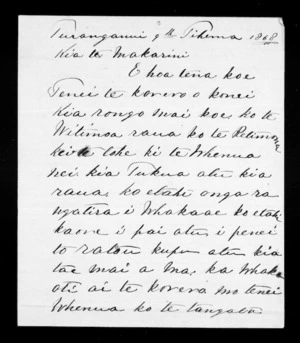 Turanganui 9th Tihema 1868
Kia te Makarini
E hoa tena koe
Tenei te korero o konei
Kia rongo mai koe ko te
Witimoa raua ko te Retimona
kei te tohe ki te Whenua
nei kia Tukua atu kia
raua, ko etahi onga ra
ngatira i Whakaae ko etahi
kaore i pai atu i penei
to ratou kupu atu kia
tae mai a Ma, ka Whaka
oti ai te korero mo tenei
Whenua ko te tangata